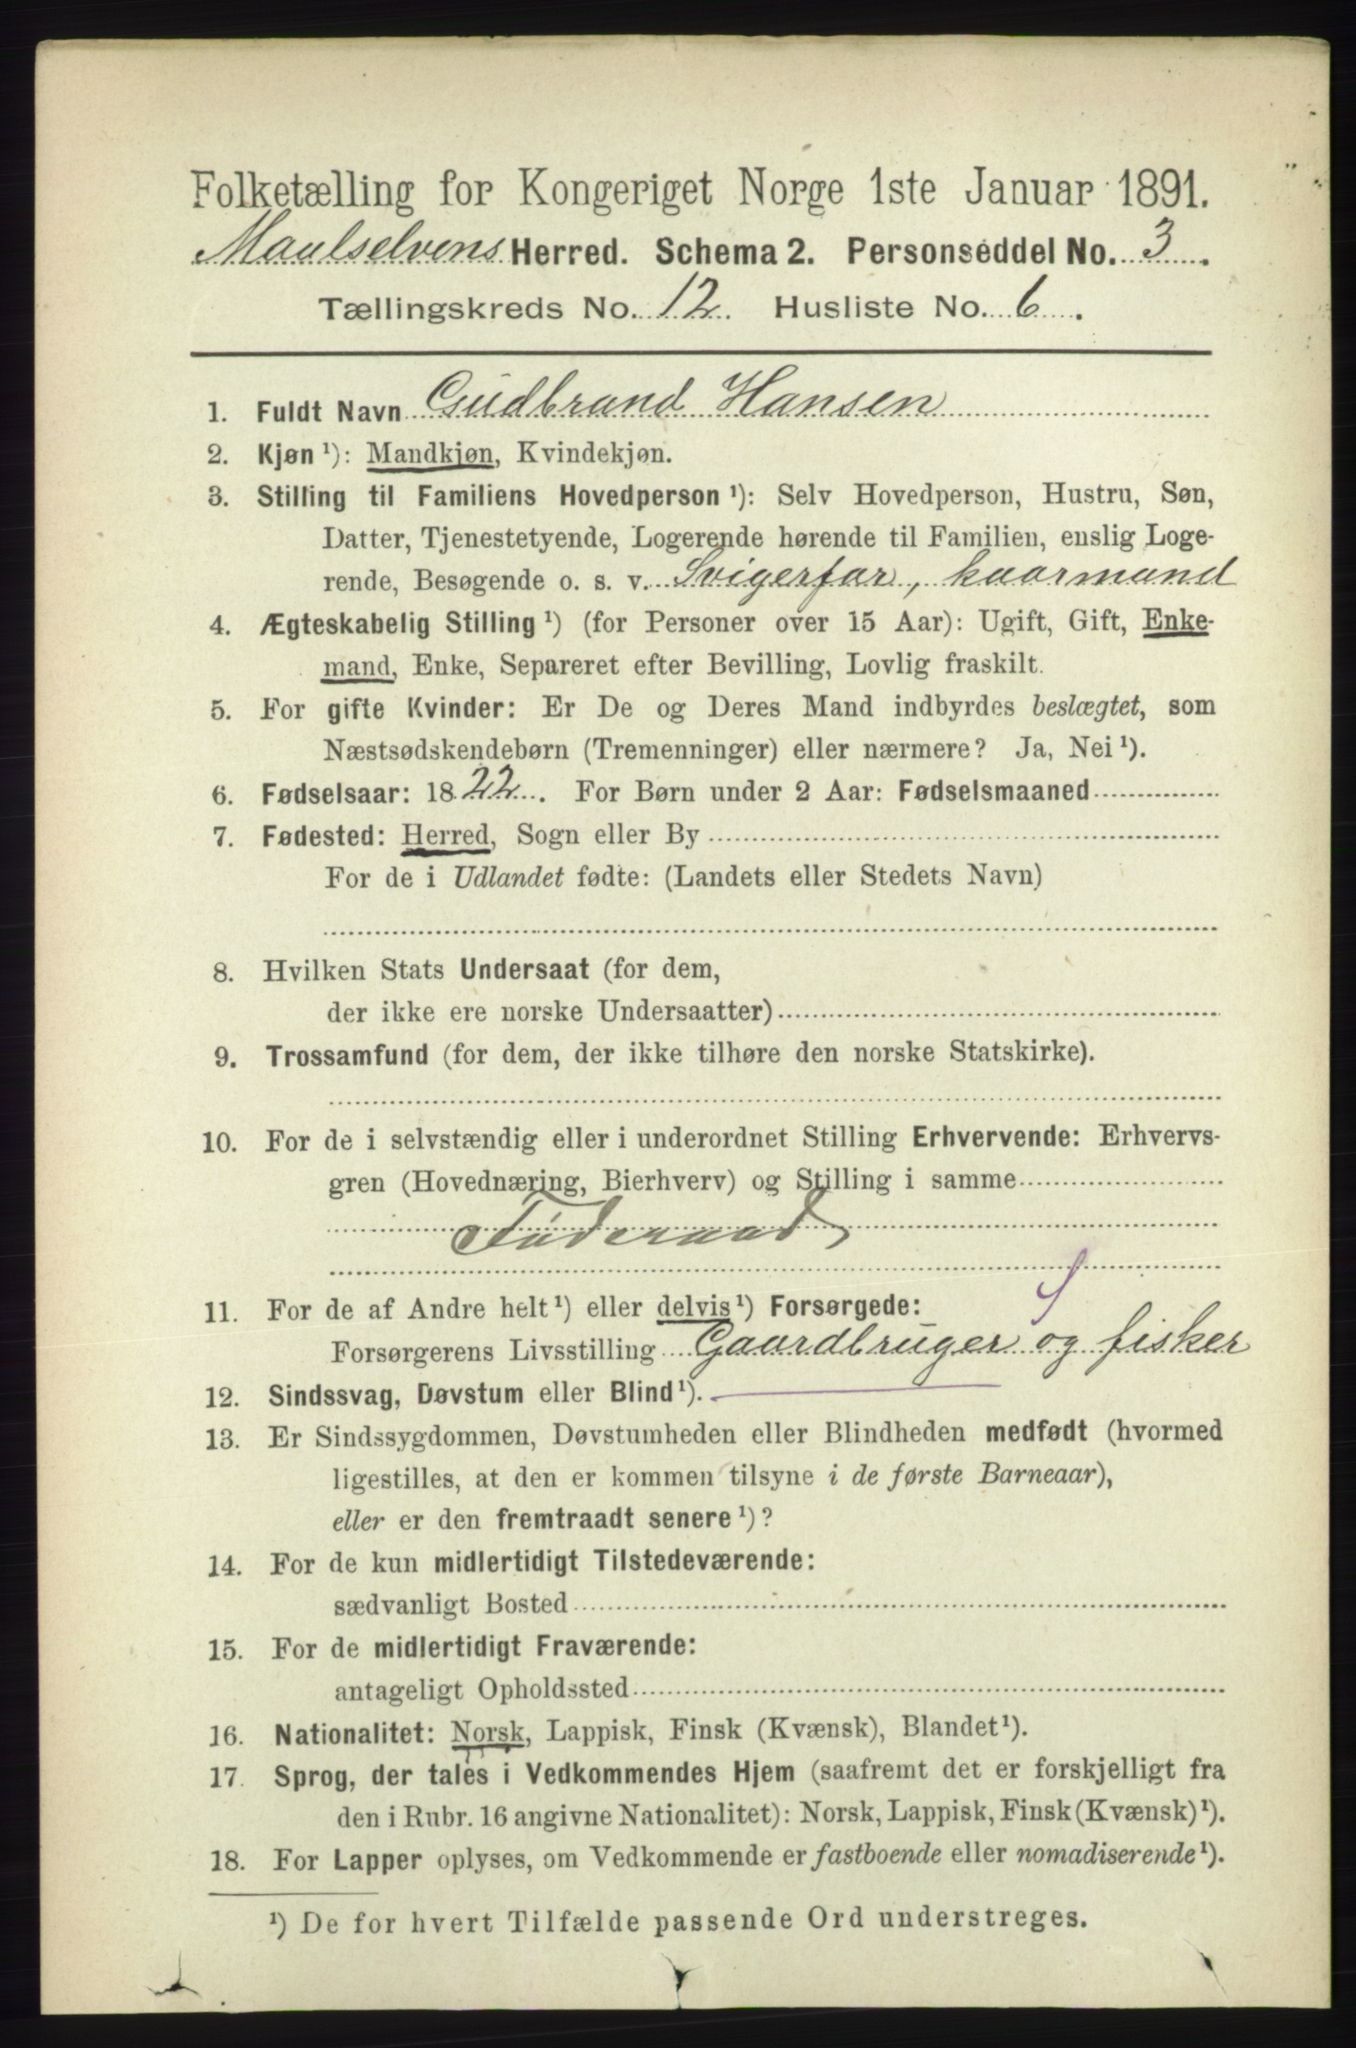 Folketælling for Kongeriget Norge 1ste Januar 1891.
Maalselvens Herred. Schema 2. Personseddel No. 3.
Tællingskreds No. 12. Husliste No. 6.
1. Fuldt Navn Gudbrand Hansen
2. Kjøn ¹): Mandkjøn, Kvindekjøn.
3. Stilling til Familiens Hovedperson ¹): Selv Hovedperson, Hustru, Søn,
Datter, Tjenestetyende, Logerende hørende til Familien, enslig Loge-
rende, Besøgende o. s. v. Svigerfar, kaarmand
4. Ægteskabelig Stilling ¹) (for Personer over 15 Aar): Ugift, Gift, Enke-
mand, Enke, Separeret efter Bevilling, Lovlig fraskilt.
5. For gifte Kvinder: Er De og Deres Mand indbyrdes beslægtet, som
Næstsødskendebørn (Tremenninger) eller nærmere? Ja, Nei ¹).
6. Fødselsaar: 1822. For Børn under 2 Aar: Fødselsmaaned
7. Fødested: Herred, Sogn eller By
For de i Udlandet fødte: (Landets eller Stedets Navn)
8. Hvilken Stats Undersaat (for dem,
der ikke ere norske Undersaatter)
9. Trossamfund (for dem, der ikke tilhøre den norske Statskirke).
10. For de i selvstændig eller i underordnet Stilling Erhvervende: Erhvervs-
gren (Hovednæring, Bierhverv) og Stilling i samme
Føderaad
11. For de af Andre helt ¹) eller delvis ¹) Forsørgede:
Forsørgerens Livsstilling Gaardbruger og fisker
12. Sindssvag, Døvstum eller Blind ¹).
13. Er Sindssygdommen, Døvstumheden eller Blindheden medfødt (hvormed
ligestilles, at den er kommen tilsyne i de første Barneaar),
eller er den fremtraadt senere ¹)?
14. For de kun midlertidigt Tilstedeværende:
sædvanligt Bosted
15. For de midlertidigt Fraværende:
antageligt Opholdssted
16. Nationalitet: Norsk, Lappisk, Finsk (Kvænsk), Blandet ¹).
17. Sprog, der tales i Vedkommendes Hjem (saafremt det er forskjelligt fra
den i Rubr. 16 angivne Nationalitet): Norsk, Lappisk, Finsk (Kvænsk) ¹).
18. For Lapper oplyses, om Vedkommende er fastboende eller nomadiserende ¹).
¹) De for hvert Tilfælde passende Ord understreges.